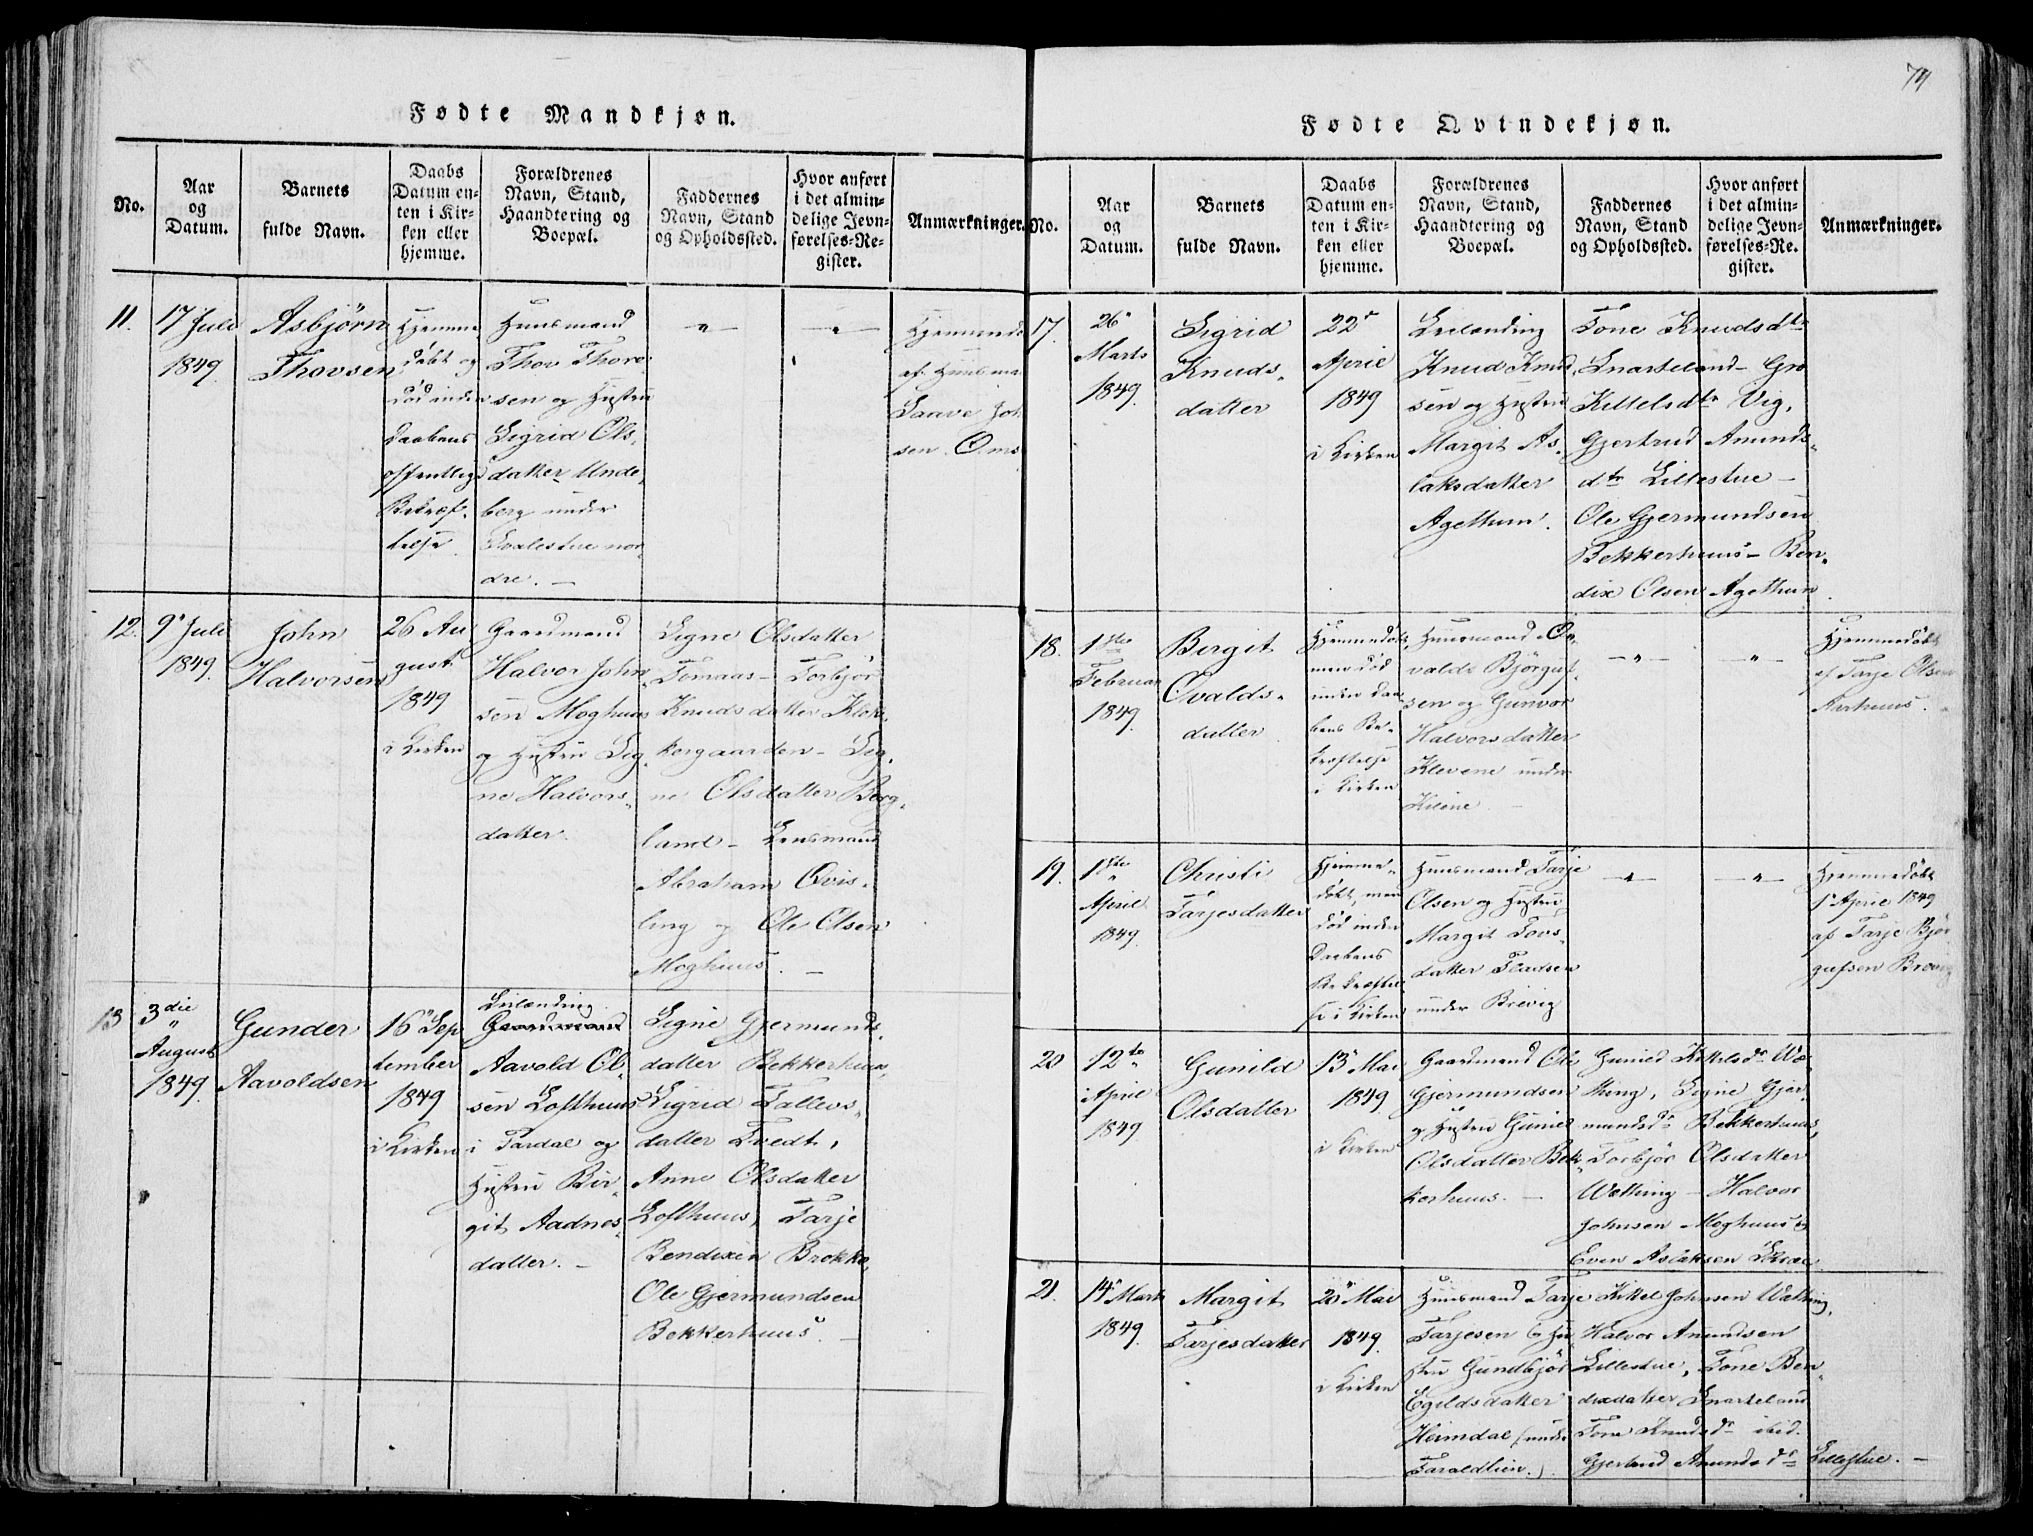 Fødte Mandkjøn.
No.
Aar
og
Datum.
Barnets
fulde Navn.
Daabs
Datum en-
ten i Kir-
ken eller
hjemme.
Forældrenes
Navn, Stand,
Haandtering og
Boepæl.
Faddernes
Navn, Stand
og Opholdssted.
Hvor anført
i det almin-
delige Jevn-
førelses-Re-
gister.
Anmærkninger.
11.
17 Juli
1849.
Asbjörn
Thovsen
Hjemme
döbt og
död inden
Daabens
offentlige
Bekræf-
telse.
Huusmand
Thov Thore-
sen og Hustru
Sigrid Ols-
datter Unde-
berg under
nor-
dre. —
—"—
—"—
af Huusma
Saave Joh
sen. Oms
12.
9 Juli
1849.
John
Halvorsen
26 Au
gust
1849
i Kirken
Gaardmand
Halvor John-
sen Moghuus
og Hustru Sig-
ne Halvors-
datter.
Signe Olsdatter
Tomaas — Torbjör
Knudsdatter Klok-
kergaarden — Sig-
ne Olsdatter Berg-
land — Lensmand
Abraham Qvis-
ling og Ole Olsen
Moghuus. —
13
3die
August
1849.
Gunder
Aavoldsen
16 Sep
tember
1849
i Kirken
Leilænding
Gaardmand
Aavold Ol-
sen Lofthuus
i Tardal og
Hustru Bir-
git Aadnes-
datter. —
Signe Gjermunds-
datter Bekkerhuus,
Sigrid Tallevs-
datter Tvedt,
Anne Olsdatter
Lofthuus, Tarje
Bendixen Brokke,
Ole Gjermundsen
Bekkerhuus. —
74
Fødte Qvindekjøn.
No.
Aar
og
Datum.
Barnets
fulde Navn.
Daabs
Datum en-
ten i Kir-
ken eller
hjemme.
Forældrenes
Navn, Stand,
Haandtering og
Boepæl.
Faddernes
Navn, Stand
og Opholdssted.
Hvor anført
i det almin-
delige Jevn-
førelses-Re-
gister.
Anmærkninger.
17.
26
Marts
1849.
Sigrid
Knuds-
datter
22
April
1849
i Kirken
Leilænding
Knud Knud-
sen og Hustru
Margit As-
laksdatter
Agethun.
Tone Knudsdtr
Snarteland — Gro
Kittelsdtr Vig,
Gjertrud Amunds-
dtr Lillestue —
Ole Gjermundsen
Bekkerhuus — Ben-
dix Olsen Agethun.
18.
1ste
Februar
1849.
Bergit
Ovalds-
datter
Hjemmedöbt
men död
inden Daa-
bens Be-
kræftelse
i Kirken
Huusmand O-
valds Björguf-
sen og Gunvor
Halvorsdatter
Klevene under
Kilene. —
—"—
—"—
Hjemmedöbt
af Tarje Olsen
Aarhuus.
19.
1ste
April
1849.
Christi
Tarjesdatter
Hjemme-
döbt, men
död inden
Daabens
Bekræftel
se i Kirken
Huusmand Tarje
Olsen og Hustru
Margit Tovs-
datter
under Brevig
—"—
—"—
Hjemmedöbt
1 April 1849
af Tarje Björ
gufsen Brevig
20
12te
April
1849.
Gunild
Olsdatter
13 Mai
1849
i Kirken
Gaardmand Ole
Gjermundsen
og Hustru Gunild
Olsdatter Bek-
kerhuus. —
Gunild Kittelsdr Wæ-
thing, Signe Gjer-
mundsdr Bekkerhuus,
Torbjör Olsdatter
Wæthing — Halvor
Johnsen Moghuus og
Even Aslaksen
21.
14 Marts
1849.
Margit
Tarjesdatter
20 Mai
1849.
i Kirken
Huusmand Tarje
Tarjesen & Hu
stru Gundbjör
Egildsdatter
Heimdal (under
Taraldlien.).
Kittel Johnsen Wæthing,
Halvor Amundsen
Lillestue, Tone Ben-
dixdatter Snarteland
Tone Knudsdr ibid.
Gjertrud Amundsdr Lillestue. —